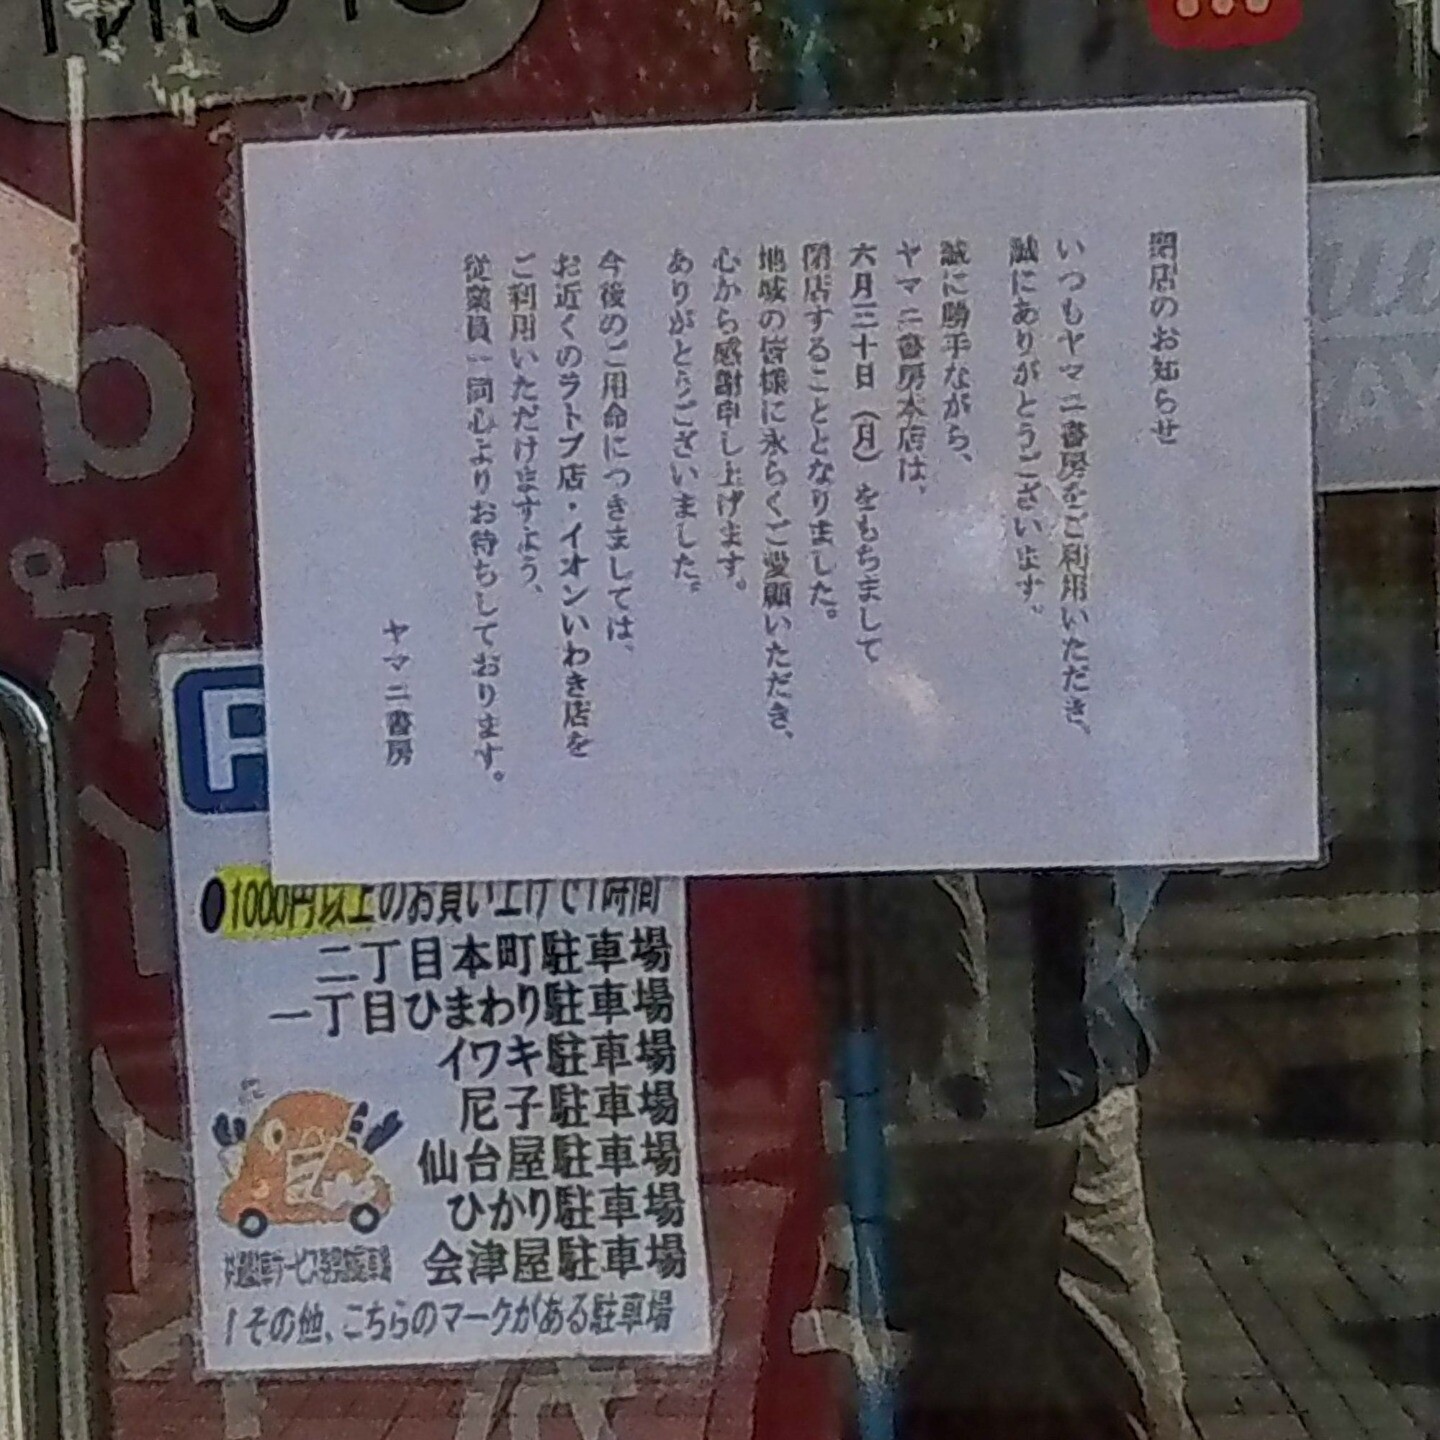 閉店のお知らせ
いつもヤマニ書房をご利用いただき、
誠にありがとうございます。
誠に勝手ながら、
ヤマニ書房本店は、
六月三十日（月）をもちまして
閉店することとなりました。
地域の皆様に永らくご愛顧いただき、
心から感謝申し上げます。
ありがとうございました。
今後のご用命につきましては、
お近くのラトブ店・イオンいわき店を
ご利用いただけますよう、
従業員一同心よりお待ちしております。
ヤマニ書房
P
1000円以上のお買い上げで1時間
二丁目本町駐車場
一丁目ひまわり駐車場
イワキ駐車場
尼子駐車場
仙台屋駐車場
ひかり駐車場
会津屋駐車場
その他、こちらのマークがある駐車場